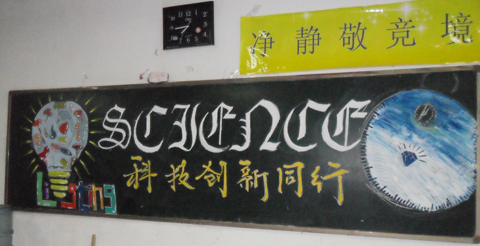 净静敬竞境
SCIENCE
科技创新同行